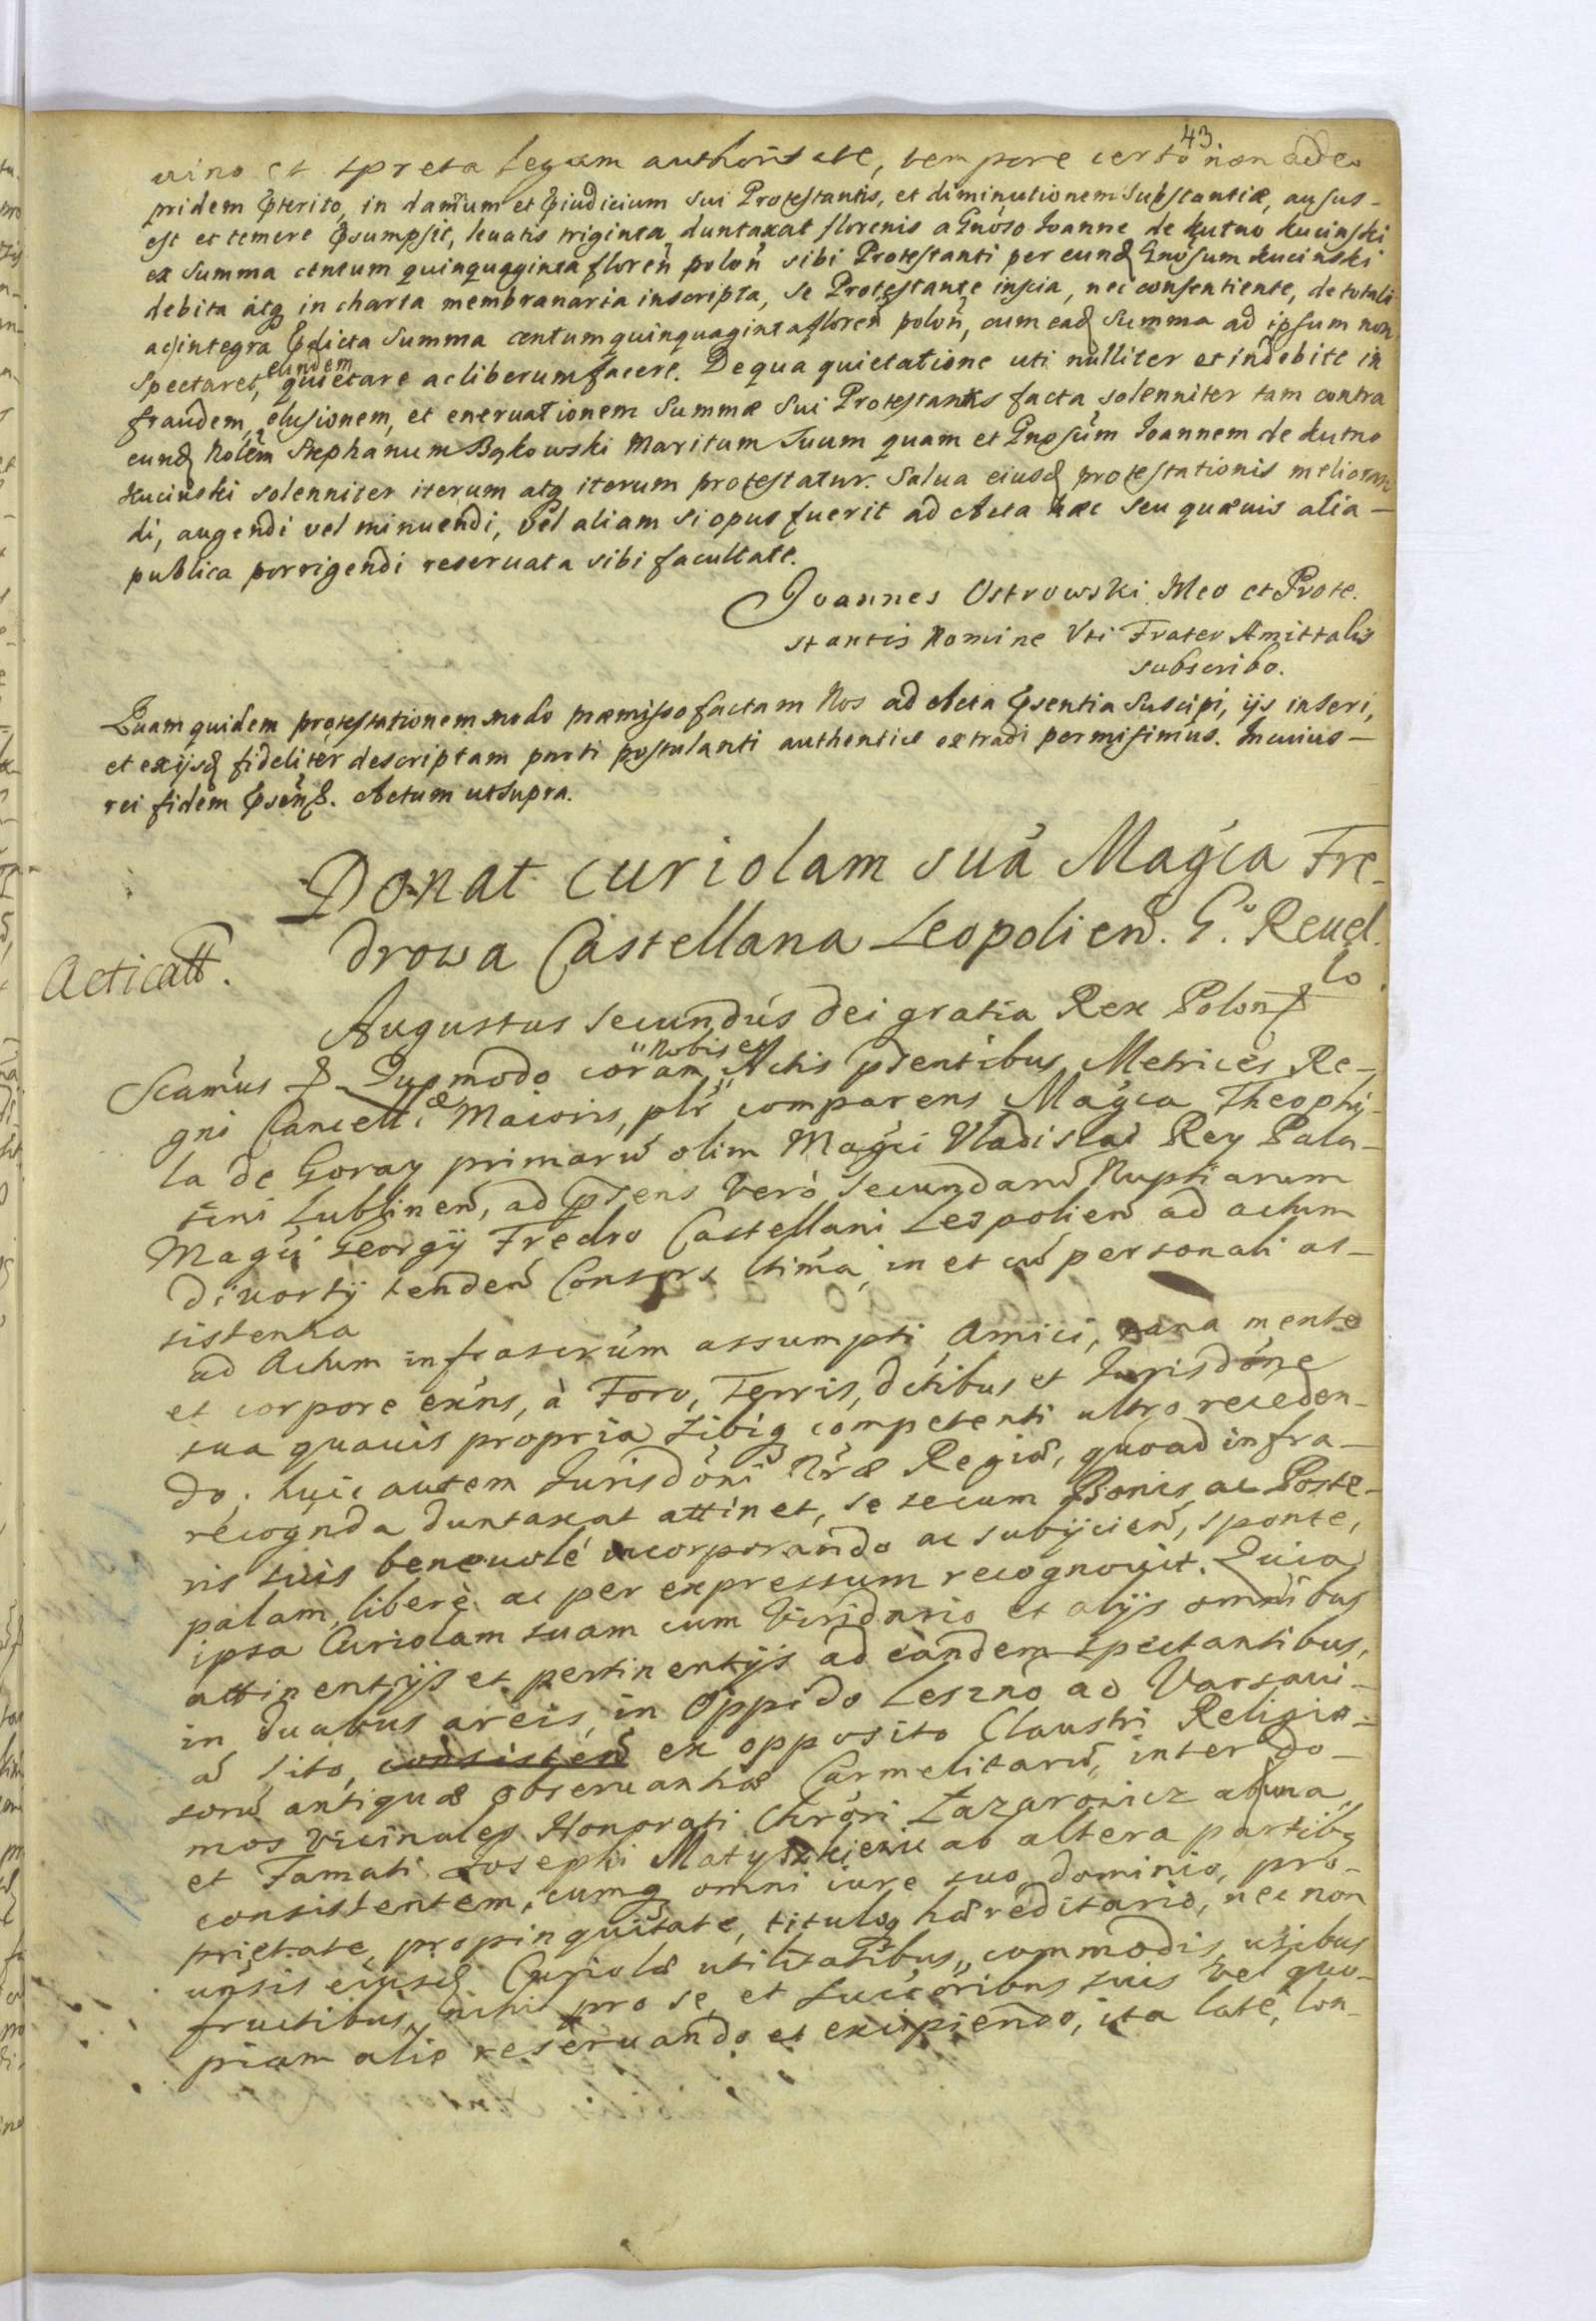 43
uino et spreta legum authoritate, tempore certo non adeo
pridem pterito, in damnum et piudicium sui Protestantis, et diminutionem Substantiæ, ausus-
est et temere psumpsit, leuatis triginta duntaxat florenis a Gnoso Ioanne de Kutno Kucinski
ex Summa centum quinquaginta floren polon sibi Protestanti per eund Gnosum Kucinski
debita atq in charta membranaria inscripta, se Protestante inscia, nec consentiente, de totali
ac integra pdicta Summa centum quinquaginta floren polon, cum ead Summa ad ipsum non
spectaret, eundem quietare ac liberum facere. De qua quietatione uti nulliter et indebite in
fraudem, elusionem, et eneruationem Summæ Sui Protestantis facta solenniter tam contra
eund Nolem Stephanum Bąkowski Maritum Suum quam et Gnosum Ioannem de Kutno
Kucinski solenniter iterum atq iterum protestatur. Salua eiusd protestationis melioran
di, augendi vel minuendi, vel aliam si opus fuerit ad Acta hæc seu quæuis alia-
publica porrigendi reseruata sibi facultate.
Joannes Ostrowski Meo et Prote.
stantis Nomine Vti Frater Amittalis
subscribo.
Quam quidem protestationem modo præmisso factam Nos ad Acta psentia Suscipi, ijs inseri,
et ex ijsd fideliter descriptam parti postulanti authentice extradi permisimus. In cuius-
rei fidem psen &. Actum ut supra.
Donat curiolam suá Magca Fre-
drowa Castellana Leopolien. G. Reuel.
lo
Acticatt.
Augustus secundus Dei gratia Rex Polon &
Scamus & Quo modo coram Nobis et Actis pentibus Metrices Re-
gni Cancell. Maioris, plr comparens Magca Theophi-
la de Goray primarū olim Magci Vladislai Rey Pala-
tini Lublinen, ad psens verò secundarū Nuptiarum
Magci Georgij Fredro Castellani Leopolien ad actum
diuortij tenden Consors ltima, in et cū personali as-
sistentia
ad Actum infrascrum assumpti Amici, sana mente
et corpore exns, à Foro, Terris, dctibus et Jurisdone
sua quauis propria sibiq competenti ultro receden-
do; huic autem Jurisdoni Nræ Regiæ, quoad infra-
recognda duntaxat attinet, se secum Bonis ac Poste-
ris suis beneuolé incorporando ac subijcien, sponte,
palam, liberè ac per expressum recognouit. Quia
ipsa Curiolam suam cum Viridario et alijs omnibus
attinentijs et pertinentijs ad eandem spectantibus,
in duabus areis, in Oppido Leszno ad Varsaui-
ā sito, consisten ex opposito Claustri Religio-
sorū antiquæ obseruantiæ Carmelitarū, inter do-
mos vicinales Honorati Chrori Łazarowicz ab una,
et Famati Josephi Matyszkiewic ab altera partibq
consistentem, cumq omni iure suo, dominio, pro-
prietate, propinquitate, tituloq hæreditario, nec non
unsis eiusd Curiolæ utilitatibus, commodis, usibus
fructibus, nihil pro se, et succoribus suis vel quo-
piam alio reseruando et excipiendo, ita late, lon-